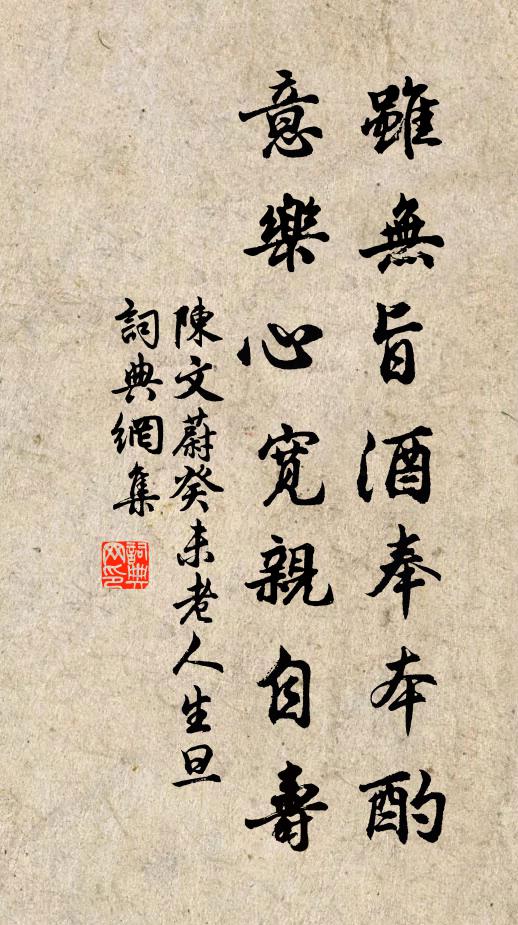 雖無旨酒奉夲酌
意樂心寬親自壽
陳文蔚癸未老人生旦
詞典網集
詞典网印